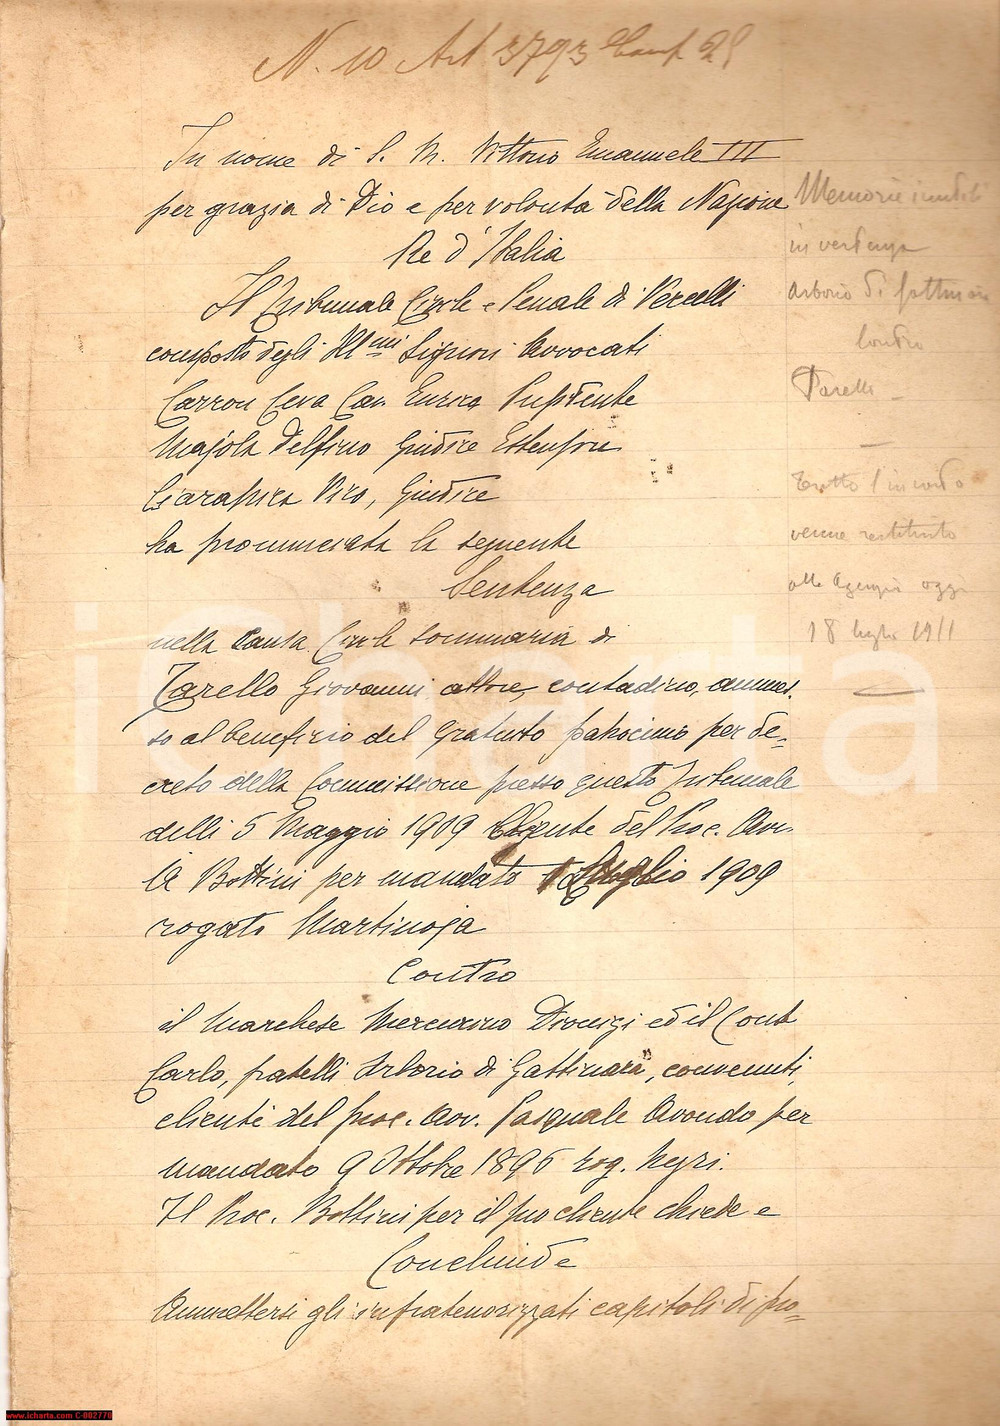 N. 10 Art 3793 Camp 29
In nome di S. M. Vittorio Emanuele III
per grazia di Dio e per volontà della Nazione
Re d'Italia
Il Tribunale Civile e Penale di Vercelli
composto degli Ill.mi Signori Avvocati
Carron Ceva Cav. Enrico Presidente
Majola Delfino Giudice Estensore
Ciarapica Piro, Giudice
ha pronunciata la seguente
Sentenza
nella Causa Civile Sommaria di
Tarello Giovanni attore, contadino, ammes.
so al beneficio del gratuito patrocinio per de-
creto della Commissione presso questo Tribunale
delli 5 Maggio 1909 Cliente del Proc. Avv.
Bottini per mandato Luglio 1909
rogato Martinoja
Contro
il Marchese Mercurino Dionigi ed il Conte
Carlo, fratelli Arborio di Gattinara, convenuti,
clienti del proc. Avv. Pasquale Avondo per
mandato 9 Ottobre 1896 rog. Negri.
Il Proc. Bottini per il suo cliente chiede e
Conclude
Ammettersi gli infratenorizzati capitoli di pro-
Memorie
in vertenza
Arborio di Gattinara
Contro
Tarello
Tutto l'incarto
venne restituito
alla Agenzia oggi
18 luglio 1911
icharta
www.icharta.com C-002770